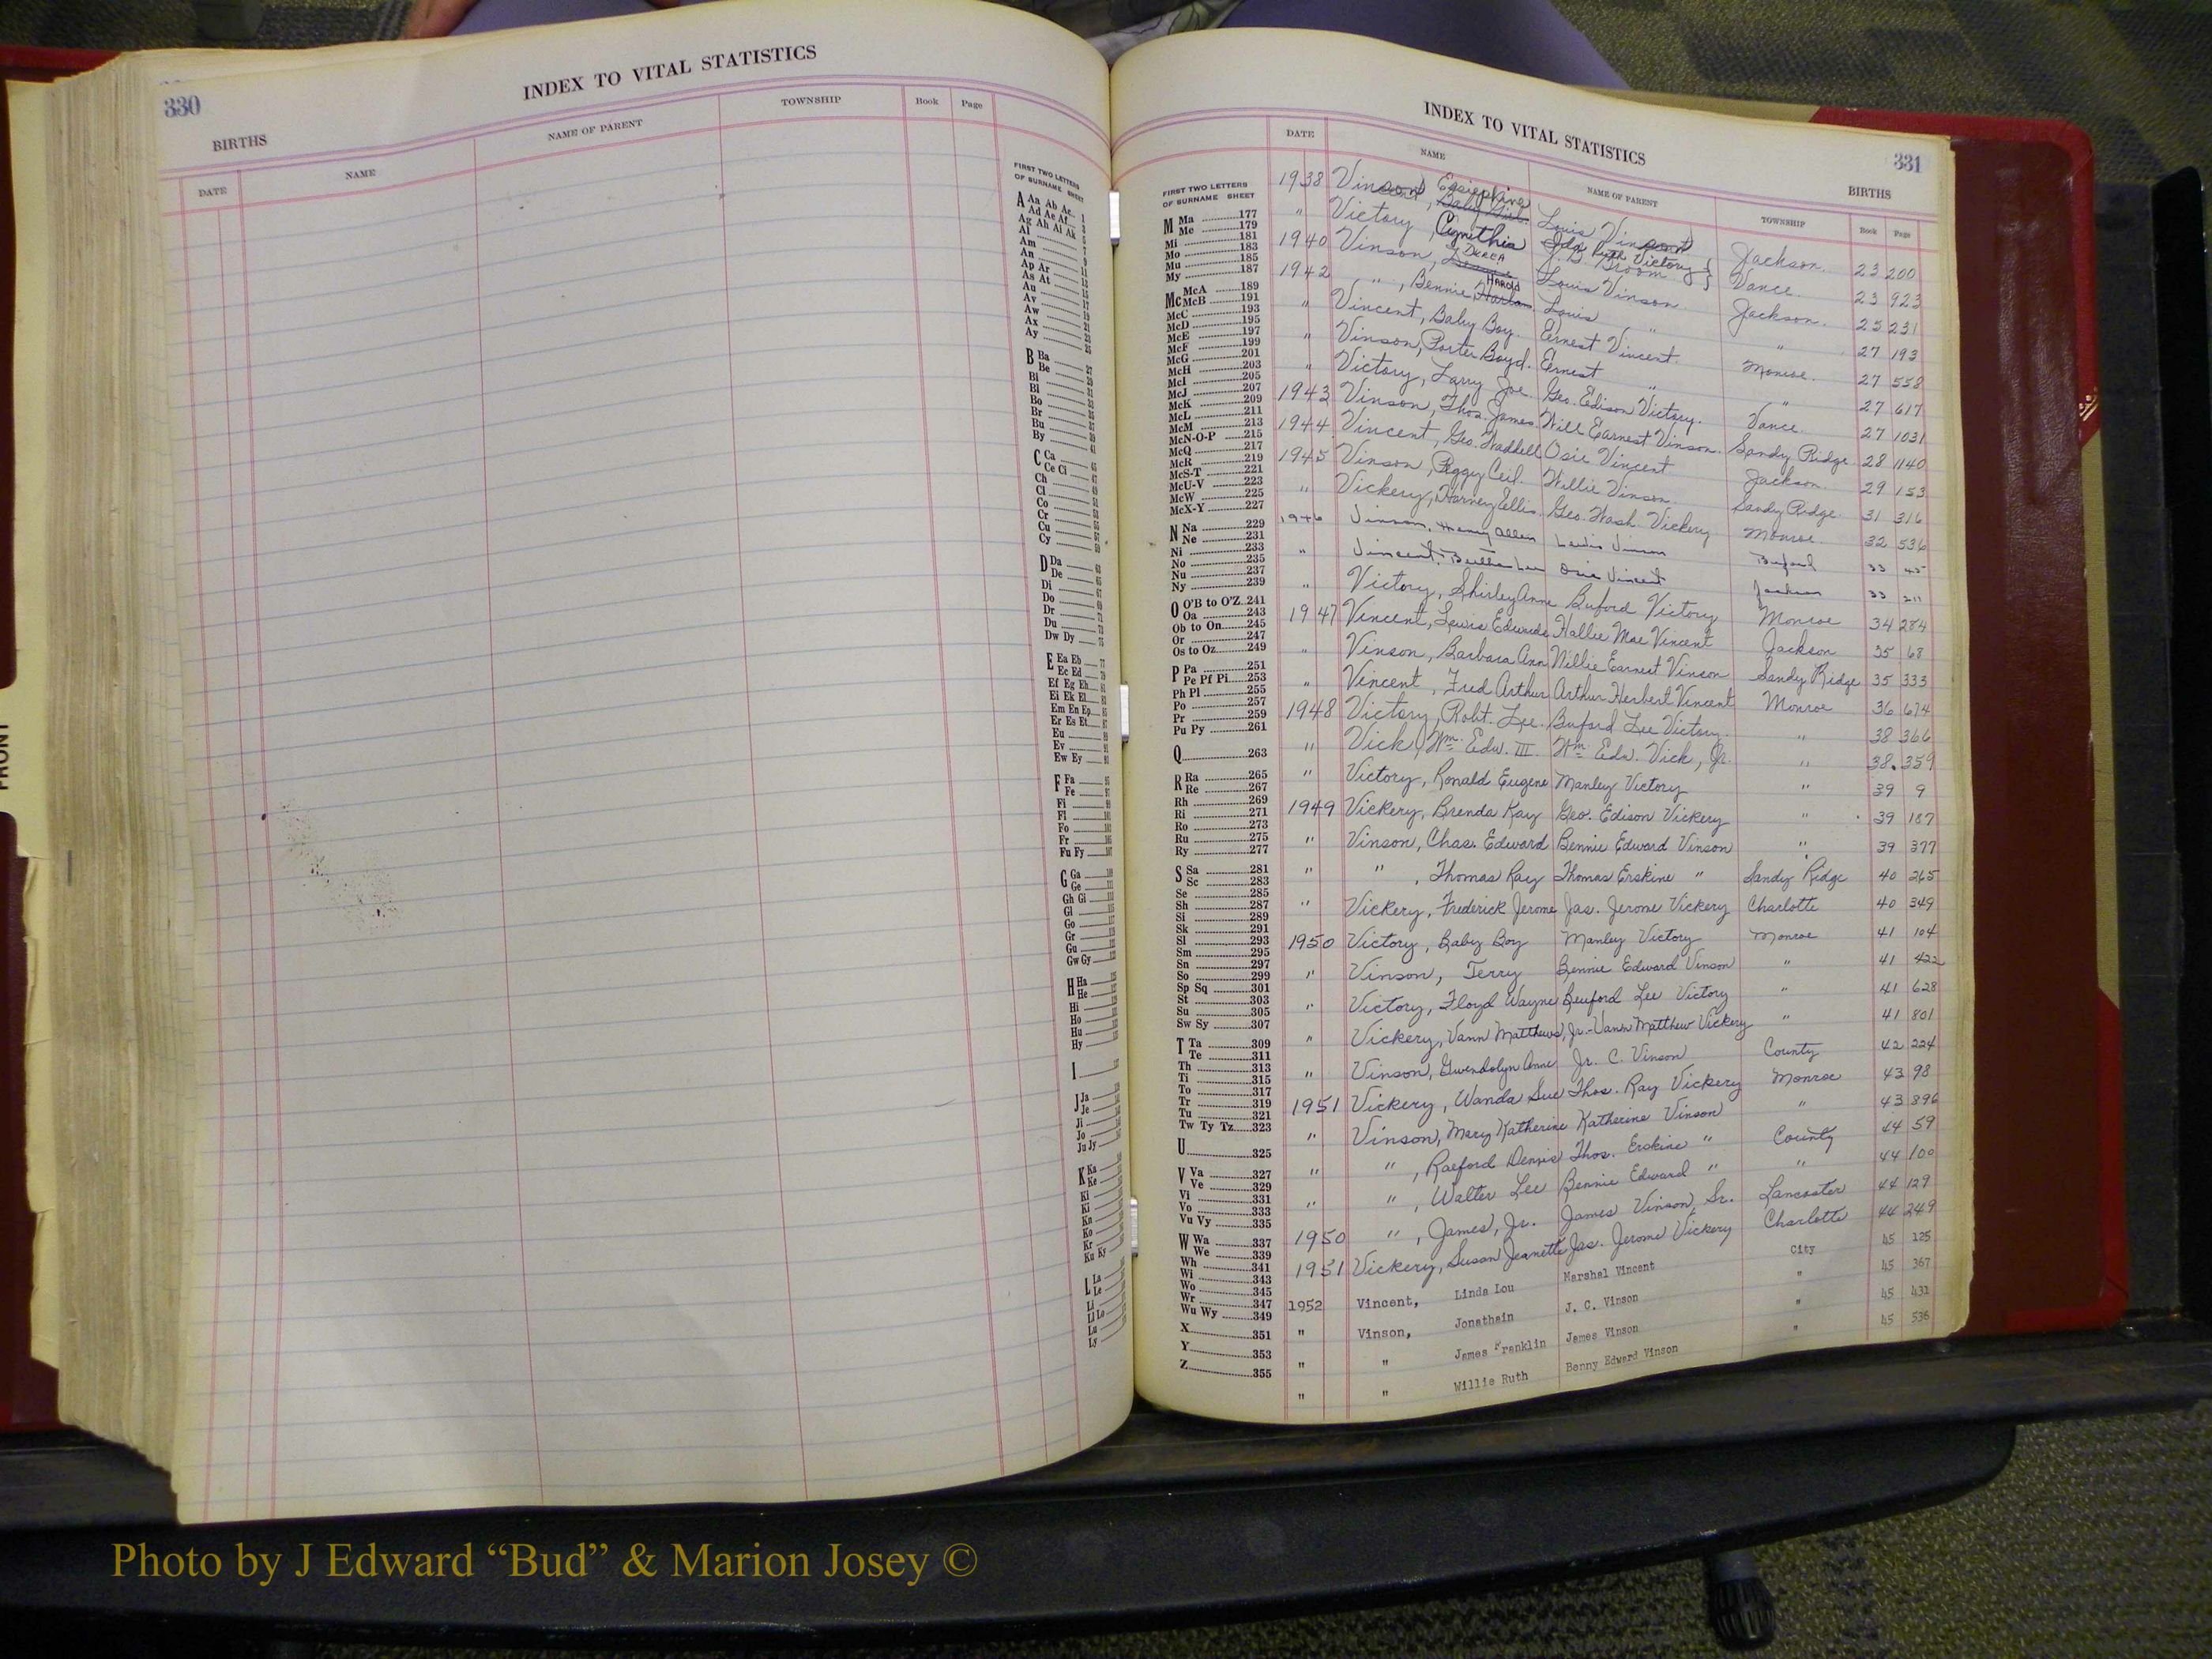 330
INDEX TO VITAL STATISTICS
BIRTHS
DATE NAME NAME OF PARENT TOWNSHIP Book Page
FIRST TWO LETTERS
OF SURNAME SHEET
A Aa Ab Ac 1
Ad Ae Af 3
Ag Ah Ai Ak 5
Al
Am
An
Ap Ar
As At
Au
Av
Aw
Ax
Ay
B Ba
Be
Bi
Bl
Bo
Br
Bu
By
C Ca
Ce Ci
Ch
Cl
Co
Cr
Cu
Cy
D Da
De
Di
Do
Dr
Du
Dw Dy
E Ea Eb
Ec Ed
Ef Eg Eh
Ei Ek El
Em En Ep
Er Es Et
Eu
Ev
Ew Ey
F Fa
Fe
Fi
Fl
Fo
Fr
Fu Fy
G Ga
Ge
Gh Gi
Gl
Go
Gr
Gu
Gw Gy
H Ha
He
Hi
Ho
Hu
Hy
I
J Ja
Je
Ji
Jo
Ju Jy
K Ka
Ke
Ki
Kl
Kn
Ko
Kr
Ku Ky
L La
Le
Li
Ll Lo
Lu
Ly
INDEX TO VITAL STATISTICS
331
BIRTHS
DATE NAME NAME OF PARENT TOWNSHIP Book Page
FIRST TWO LETTERS
OF SURNAME SHEET
M Ma 177
Me 179
Mi 181
Mo 183
Mu 185
My 187
Mc McA 189
McB 191
McC 193
McD 195
McE 197
McF 199
McG 201
McH 203
McI 205
McJ 207
McK 209
McL 211
McM 213
McN-O-P 215
McQ 217
McR 219
McS-T 221
McU-V 223
McW 225
McX-Y 227
N Na 229
Ne 231
Ni 233
No 235
Nu 237
Ny 239
O O'B to O'Z 241
Oa 243
Ob to On 245
Or 247
Os to Oz 249
P Pa 251
Pe Pf Pi 253
Ph Pl 255
Po 257
Pr 259
Pu Py 261
Q 263
R Ra 265
Re 267
Rh 269
Ri 271
Ro 273
Ru 275
Ry 277
S Sa 281
Sc 283
Se 285
Sh 287
Si 289
Sk 291
Sl 293
Sm 295
Sn 297
So 299
Sp Sq 301
St 303
Su 305
Sw Sy 307
T Ta 309
Te 311
Th 313
Ti 315
To 317
Tr 319
Tu 321
Tw Ty Tz 323
U 325
V Va 327
Ve 329
Vi 331
Vo 333
Vu Vy 335
W Wa 337
We 339
Wh 341
Wi 343
Wo 345
Wr 347
Wu Wy 349
X 351
Y 353
Z 355
1938 Vinson, Baby Girl Louis Vinson Jackson 23 200
" Victory, Cynthia Ida Ruth Victory J. B. Broom } Vance 23 923
1940 Vinson, Derea Louis Vinson Jackson 25 231
1942 " , Bennie Harold Louis " " 27 193
" Vincent, Baby Boy Ernest Vincent Monroe 27 558
" Vinson, Porter Boyd Ernest " " 27 617
" Victory, Larry Joe Geo. Edison Victory Vance 27 1031
1943 Vinson, Thos. James Will Earnest Vinson Sandy Ridge 28 1140
1944 Vincent, Geo. Waddell Osie Vincent Jackson 29 153
1945 Vinson, Peggy Ceil Willie Vinson Sandy Ridge 31 316
" Vickery, Harvey Ellis Geo. Wash. Vickery Monroe 32 536
1946 Vinson, Henry Allen Lewis Vinson Buford 33 45
" Vincent, Osie Vincent Jackson 33 211
" Victory, Shirley Anne Buford Victory Monroe 34 284
1947 Vincent, Lewis Edwards Hallie Mae Vincent Jackson 35 68
" Vinson, Barbara Ann Willie Earnest Vinson Sandy Ridge 35 333
" Vincent, Fred Arthur Arthur Herbert Vincent Monroe 36 674
1948 Victory, Robt. Lee Buford Lee Victory " 38 366
" Vick, Wm. Edw. III Wm. Edw. Vick, Jr. " 38 359
" Victory, Ronald Eugene Manley Victory " 39 9
1949 Vickery, Brenda Kay Geo. Edison Vickery " 39 187
" Vinson, Chas. Edward Bennie Edward Vinson " 39 377
" " , Thomas Ray Thomas Erskine " Sandy Ridge 40 265
" Vickery, Frederick Jerome Jas. Jerome Vickery Charlotte 40 349
1950 Victory, Baby Boy Manley Victory Monroe 41 104
" Vinson, Terry Bennie Edward Vinson " 41 422
" Victory, Floyd Wayne Beuford Lee Victory " 41 628
" Vickery, Vann Matthews, Jr. - Vann Matthew Vickery " 41 801
" Vinson, Gwendolyn Anne Jr. C. Vinson County 42 224
1951 Vickery, Wanda Sue Thos. Ray Vickery Monroe 43 98
" Vinson, Mary Katherine Katherine Vinson " 43 896
" " , Raeford Dennis Thos. Erskine " County 44 59
" " , Walter Lee Bennie Edward " " 44 100
1950 " , James, Jr. James Vinson, Sr. Lancaster 44 129
1951 Vickery, Susan Jeanette Jas. Jerome Vickery Charlotte 44 249
1952 Vincent, Linda Lou Marshal Vincent City 45 125
" Vinson, Jonathain J. C. Vinson " 45 367
" " James Franklin James Vinson " 45 432
" " Willie Ruth Benny Edward Vinson " 45 536
FRONT
Photo by J Edward “Bud” & Marion Josey ©